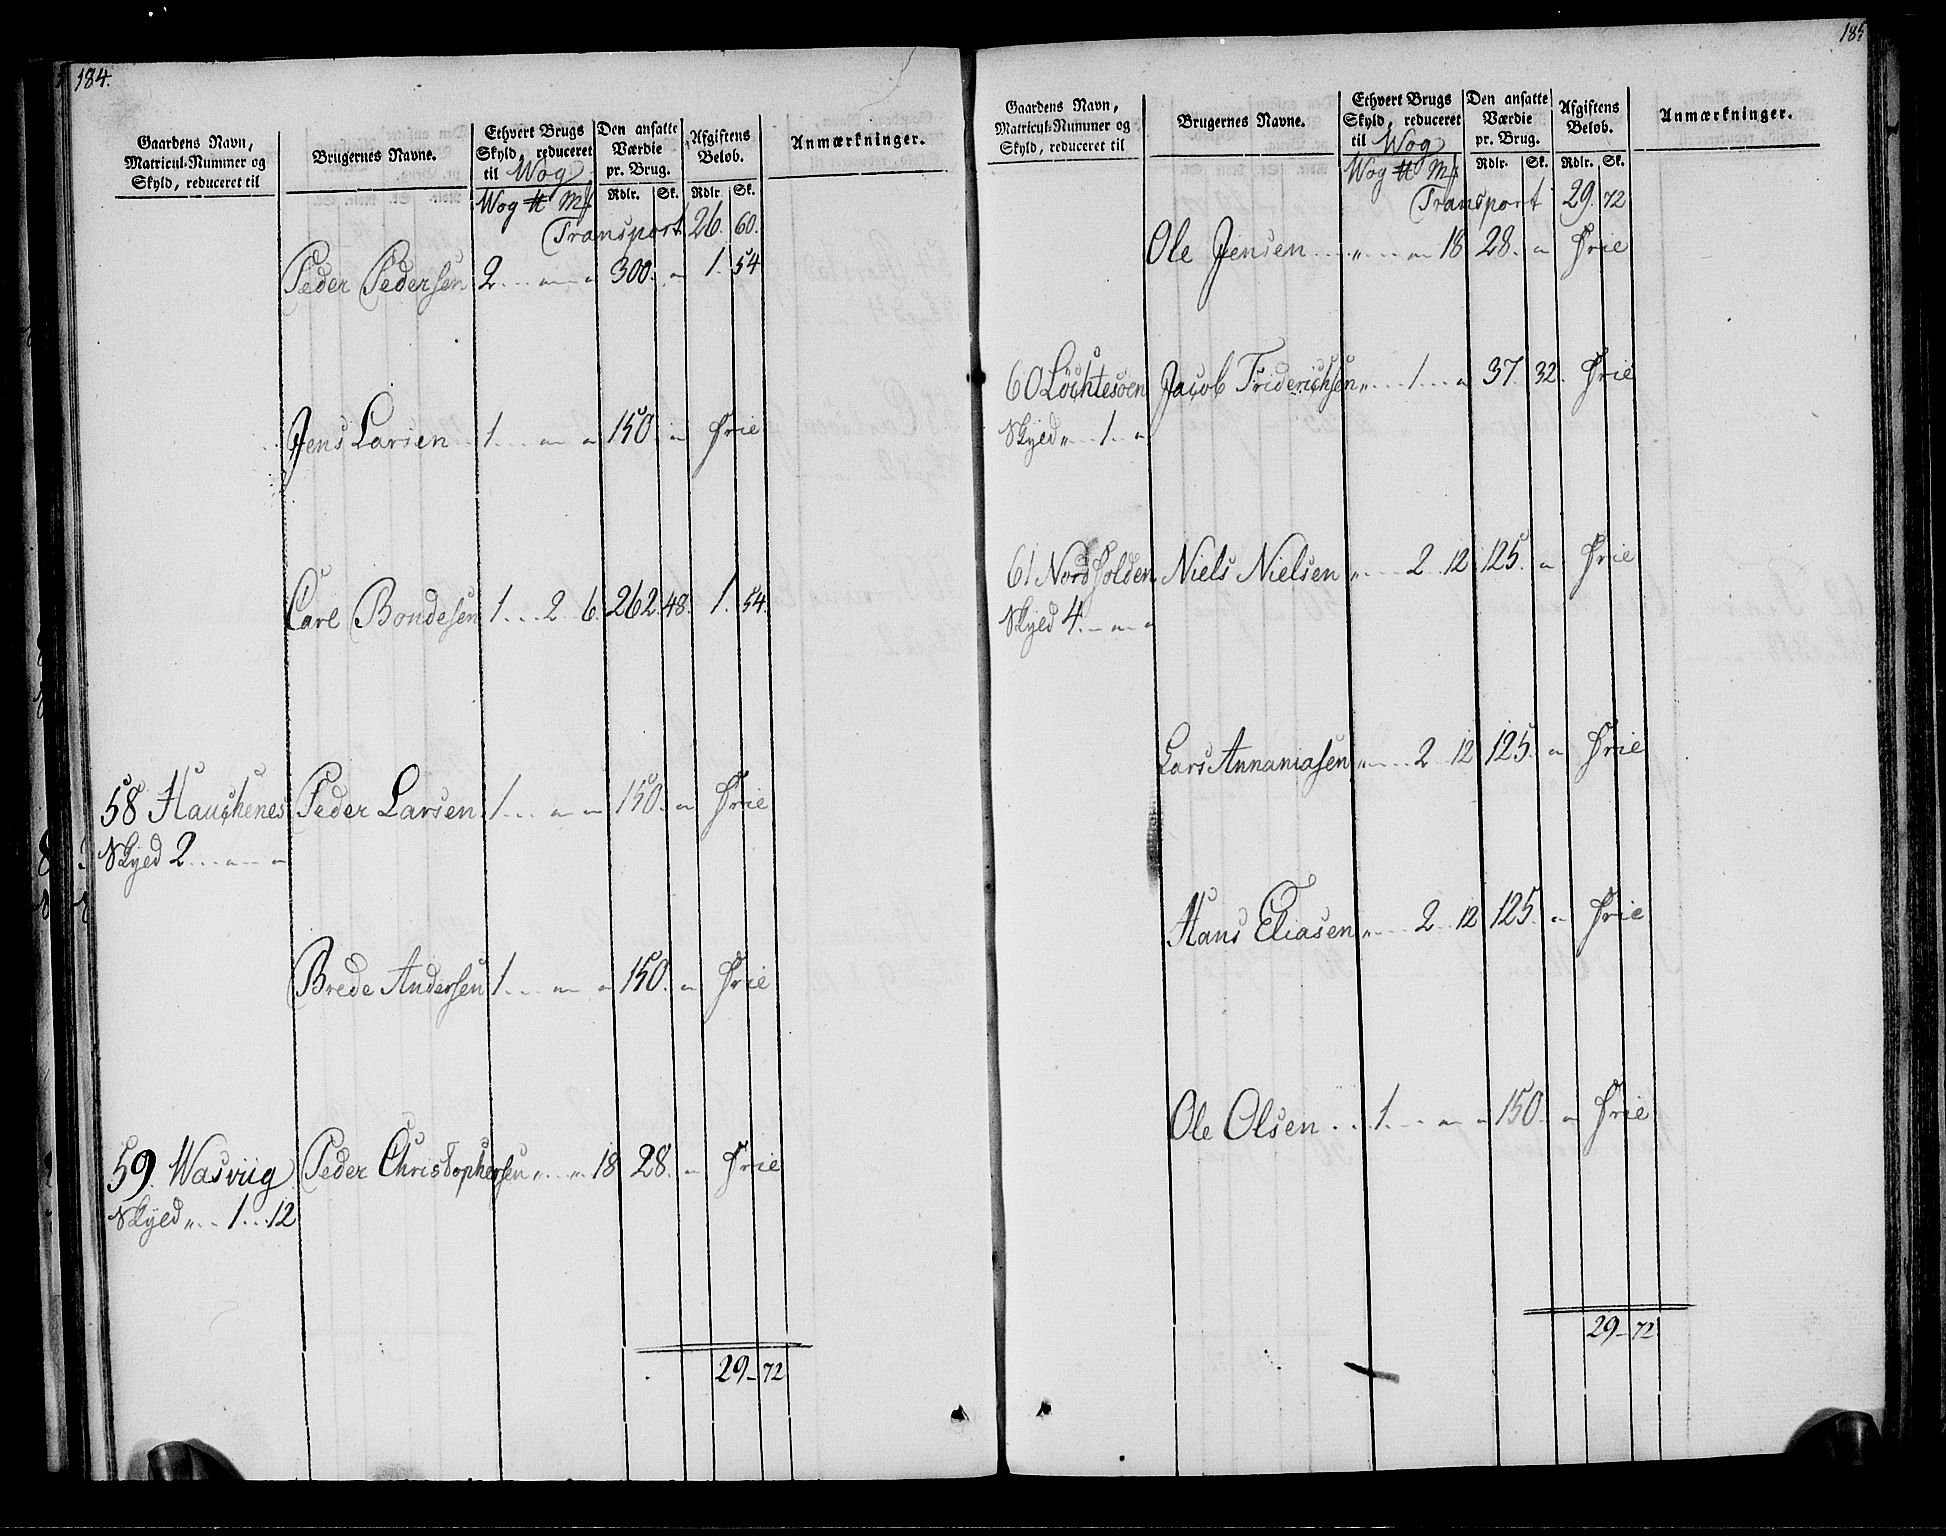 184.
Gaardens Navn, Matricul-Nummer og Skyld, reduceret til | Brugernes Navne. | Ethvert Brugs Skyld, reduceret til Wog | Den ansatte Værdie pr. Brug. | Afgiftens Beløb. | Anmærkninger.
Wog ℔ Mk | Rdlr. Sk. | Rdlr. Sk.
Transport 26. 60.
Peder Pedersen 2 . . . „ „ 300. „ 1. 54
Jens Larsen 1 . . . „ „ 150. „ Frie
Carl Bondesen 1 . . . 2 6. 262. 48. 1. 54.
58 Hauchenes Peder Larsen 1 . . . „ „ 150. „ Frie
Skyld 2 . . . „ . . „
Brede Andersen 1 . . . „ „ 150. „ Frie
59. Wasviig Peder Christophersen „ . . „ 18 28. „ Frie
Skyld „ . . 1 . . 12
29 – 72
185
Gaardens Navn, Matricul-Nummer og Skyld, reduceret til | Brugernes Navne. | Ethvert Brugs Skyld, reduceret til Wog | Den ansatte Værdie pr. Brug. | Afgiftens Beløb. | Anmærkninger.
Wog ℔ Mk | Rdlr. Sk. | Rdlr. Sk.
Transport 29. 72
Ole Jensen . . . „ . . . „ 18 28. „ Frie
60 Löchtesöen Jacob Friderichsen „ . . . 1 . . . „ 37. 32. Frie
Skyld „ . . . 1 . . „
61 Nordfolden Niels Nielsen „ . . . 2 12 125. „ Frie
Skyld 4. – „ – „
Lars Annaniasen „ . . . 2 12 125. „ Frie
Hans Eliasen „ . . . 2 12 125. „ Frie
Ole Olsen . . . 1 . . . „ „ 150. „ Frie
29 – 72